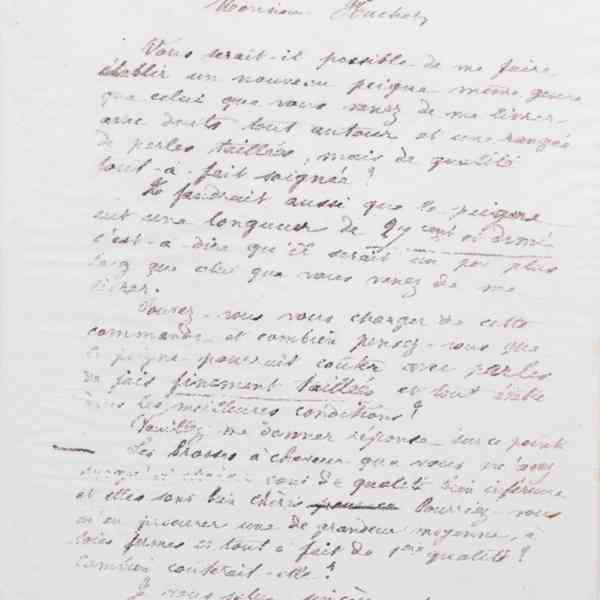 Monsieur
Vous serait-il possible de me faire
établir un nouveau peigne même genre
que celui que vous venez de me livrer
avec dents tout autour et une rangée
de perles taillées, mais de qualité
tout-à-fait soignée?
Il faudrait aussi que le peigne
eut une longueur de cent et demi
c'est-à-dire qu'il serait un peu plus
long que celui que vous venez de me
livrer.
Pouvez-vous vous charger de cette
commande et combien pensez-vous que
le peigne pourrait coûter avec perles
de jais finement taillées et tout établi
dans les meilleures conditions?
Veuillez me donner réponse sur ce point
Les brosses à cheveux que vous m'avez
sont de qualité bien inférieure
et elles sont bien chères Pourriez-vous
m'en procurer une de grandeur moyenne, à
soies fermes et tout à fait de 1ère qualité?
Combien couterait-elle?
Je vous salue